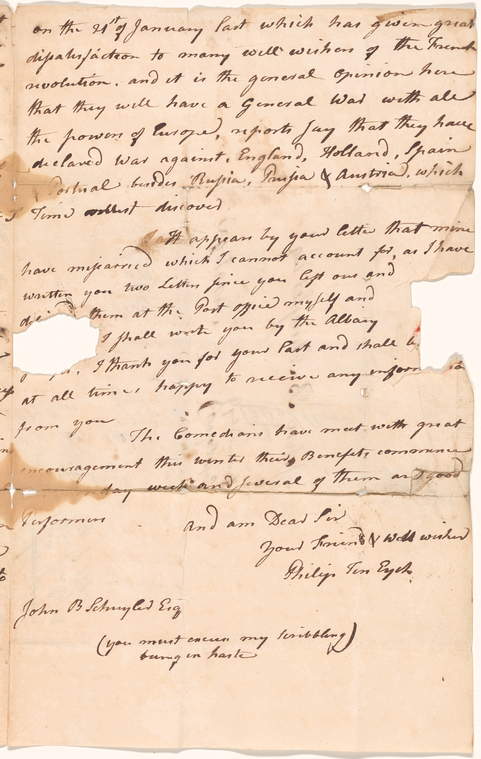 on the 21st of January last which has given great
disatisfaction to many well wishers of the French
revolution. and it is the general opinion here
that they will have a General War with all
the powers of Europe, reports say that they have
declared War against, England, Holland, Spain
Portugal besides Russia, Prusia & Austria, which
Time must discover
It appears by your letter that mine
have misparried which I cannot account for, as I have
written you two Letters since you left ous and
them at the Post office myself and
I shall write you by the Albany
I thank you for your Last and shall b
at all times happy to receive any inform
from you
The Comedians have met with great
encouragement this winter their Benefits commence
day week and several of them are good
Performers
and am Dear Sir
Your Friend & Well wisher
Philip Ten Eyck
John B Schuyler Esq
(you must excuse my scribbling)
being in haste